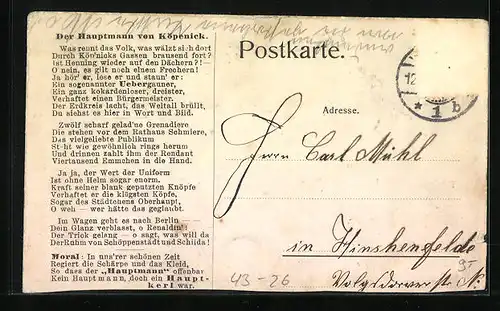 Der Hauptmann von Köpenick.
Was rennt das Volk, was wälzt sich dort
Durch Köp'nicks Gassen brausend fort?
Ist Henning wieder auf den Dächern?! —
O nein, es gilt noch einem Frechern!
Ja hör' er, lese er und staun' er:
Ein sogenannter Uebergauner,
Ein ganz kokardenloser, dreister,
Verhaftet einen Bürgermeister.
Der Erdkreis lacht, das Weltall brüllt,
Du siehst es hier in Wort und Bild.
Zwölf scharf gelad'ne Grenadiere
Die stehen vor dem Rathaus Schmiere,
Das vielgeliebte Publikum
St·ht wie gewöhnlich rings herum
Und drinnen zahlt ihm der Rendant
Viertausend Emmchen in die Hand.
Ja ja, der Wert der Uniform
Ist ohne Helm sogar enorm.
Kraft seiner blank geputzten Knöpfe
Verhaftet er die klügsten Köpfe,
Sogar des Städtchens Oberhaupt,
O weh — wer hätte das geglaubt.
Im Wagen geht es nach Berlin —
Dein Glanz verblasst, o Renaldin!
Der Trick gelang — o sagt, was will da
Der Ruhm von Schöppenstädt und Schilda!
Moral: In uns'rer schönen Zeit
Regiert die Schärpe und das Kleid,
So dass der „Hauptmann" offenbar
Kein Hauptmann, doch ein Haupt-
kerl war.
Postkarte.
12
* 1 b
Adresse.
Herrn Carl Mühl
in Hinschenfelde
Volgsdorver str.
43-26